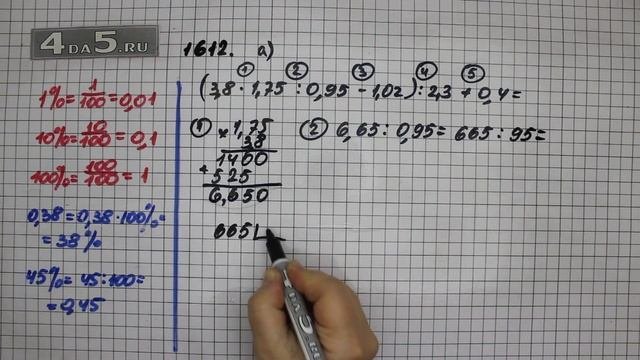 4DA5.RU
1612. а)
① ② ③ ④ ⑤
(3,8 · 1,75 : 0,95 - 1,02) : 2,3 + 0,4 =
1% = 1/100 = 0,01
10% = 10/100 = 0,1
100% = 100/100 = 1
0,38 = 0,38 · 100% =
= 38%
45% = 45 : 100 =
= 0,45
① × 1,75
38
1400
+ 525
6,650
② 6,65 : 0,95 = 665 : 95 =
665